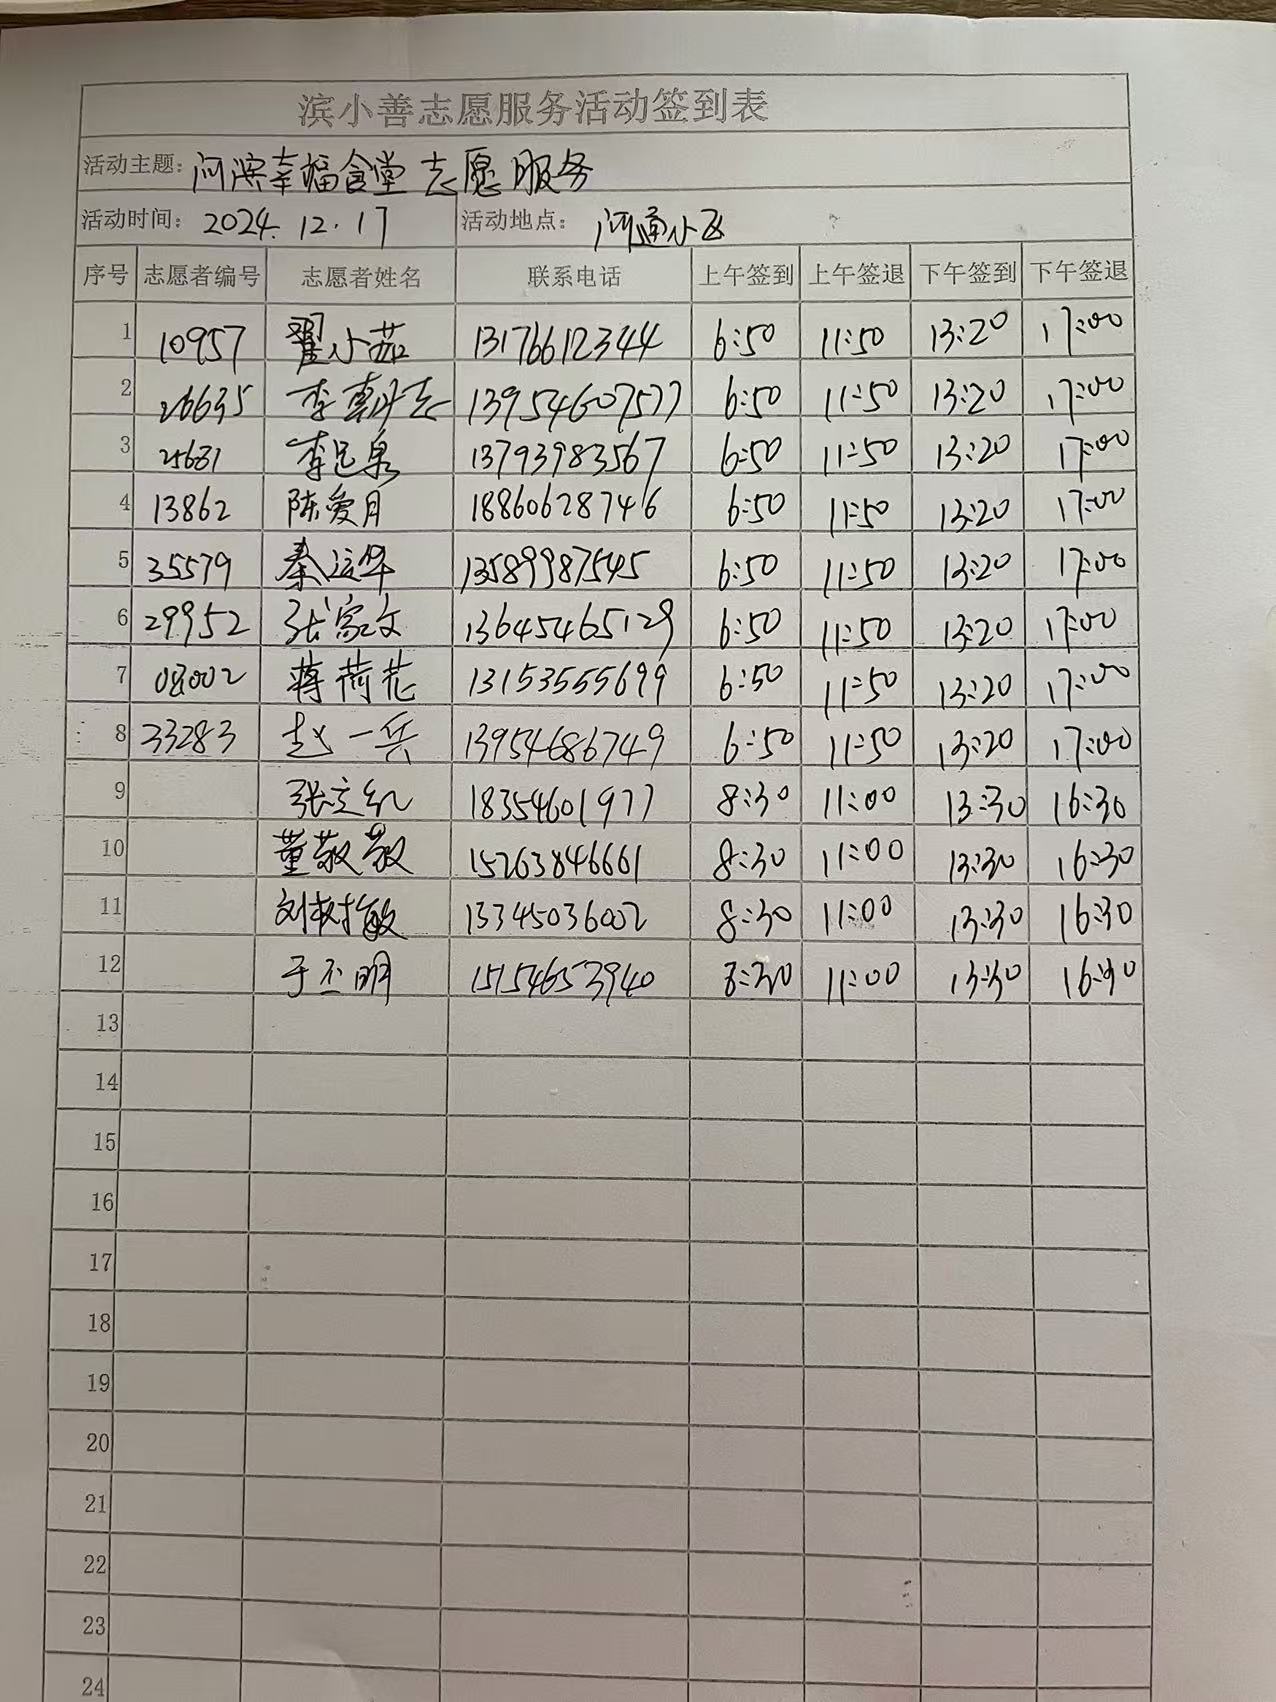 滨小善志愿服务活动签到表
活动主题: 河滨幸福食堂志愿服务
活动时间: 2024.12.17 活动地点: 河通小区
序号 志愿者编号 志愿者姓名 联系电话 上午签到 上午签退 下午签到 下午签退
1 10957 翟小茹 13176612344 6:50 11:50 13:20 17:00
2 26635 李 13954607577 6:50 11:50 13:20 17:00
3 25681 李 泉 13793983567 6:50 11:50 13:20 17:00
4 13862 陈爱月 18860628746 6:50 11:50 13:20 17:00
5 35579 秦 华 13589987545 6:50 11:50 13:20 17:00
6 29952 张家文 13645465129 6:50 11:50 13:20 17:00
7 08002 蒋荷花 13153555699 6:50 11:50 13:20 17:00
8 33283 赵一兵 13954686749 6:50 11:50 13:20 17:00
9 张立红 18354601977 8:30 11:00 13:30 16:30
10 董敬敬 15263846661 8:30 11:00 13:30 16:30
11 刘树敏 13345036002 8:30 11:00 13:30 16:30
12 于丕明 15154653940 8:30 11:00 13:30 16:30
13
14
15
16
17
18
19
20
21
22
23
24